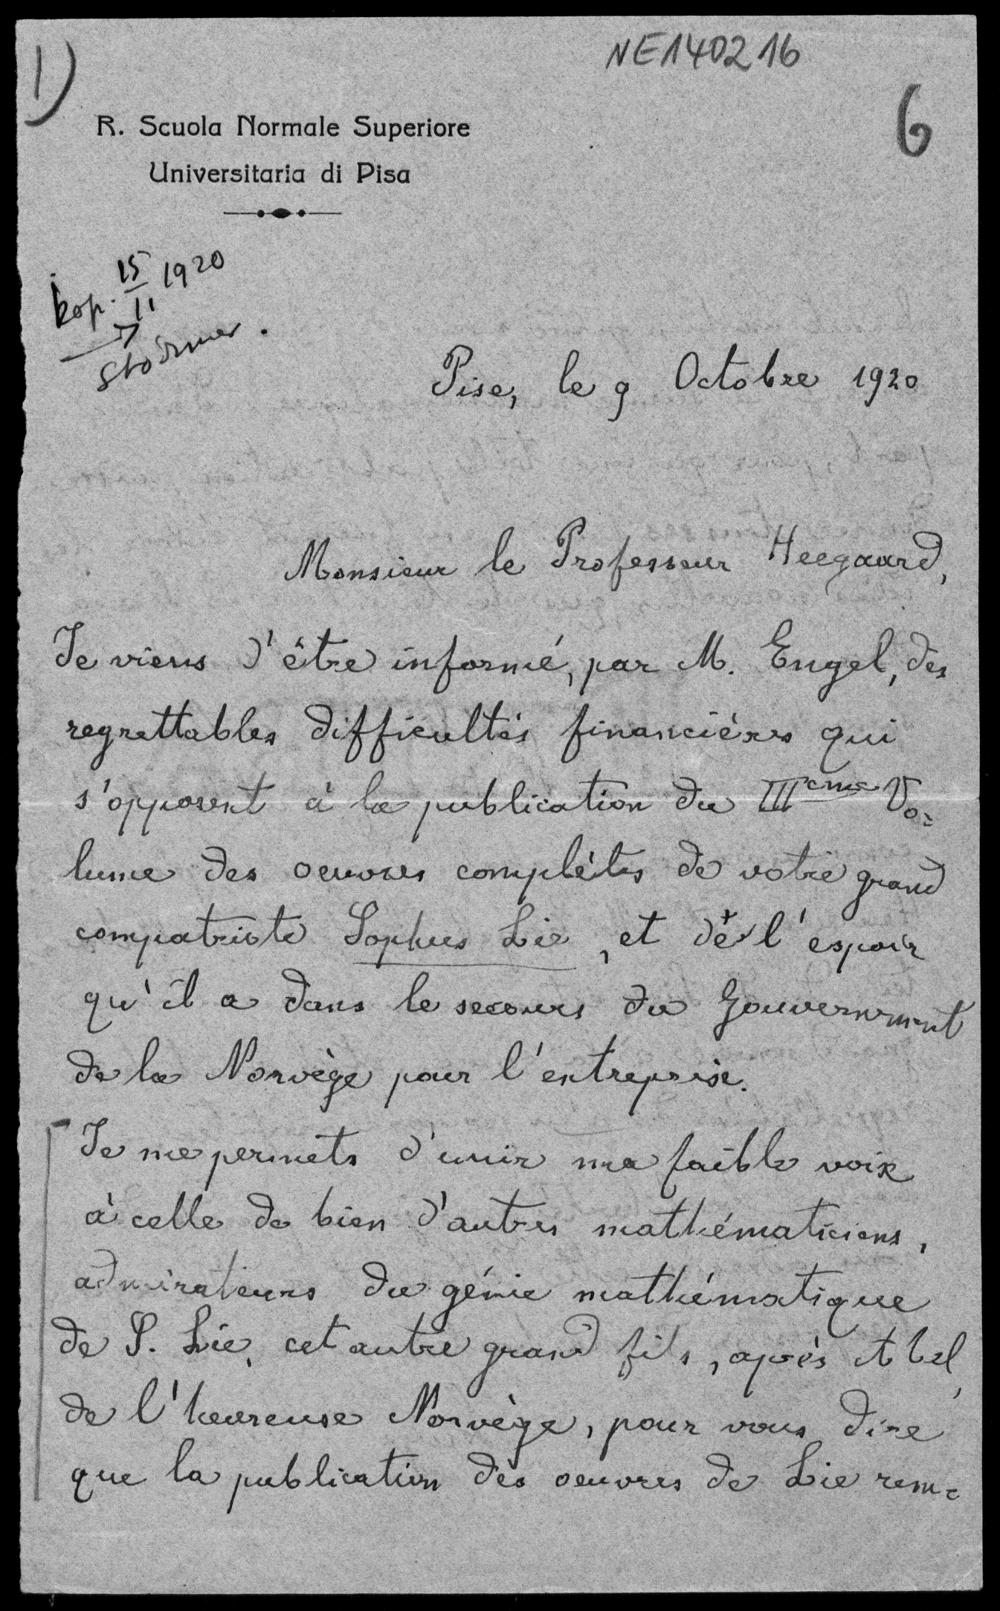 1)
NE140216
6
R. Scuola Normale Superiore
Universitaria di Pisa
kop. 15/11 1920
→ Störmer.
Pise, le 9 Octobre 1920
Monsieur le Professeur Heegaard,
Je viens d'être informé, par M. Engel, des
regrettables difficultés financières qui
s'opposent à la publication du IIIème Vo=
lume des oeuvres complètes de votre grand
compatriote Sophus Lie, et de l'espoir
qu'il a dans le secours du Gouvernement
de la Norvège pour l'entreprise.
Je me permets d'unir ma faible voix
à celle de bien d'autres mathématiciens,
admirateurs du génie mathématique
de S. Lie, cet autre grand fils, après Abel,
de l'heureuse Norvège, pour vous dire
que la publication des oeuvres de Lie rem=